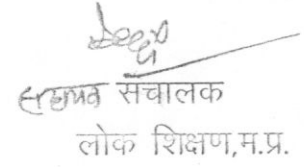 सहायक संचालक
लोक शिक्षण,म.प्र.